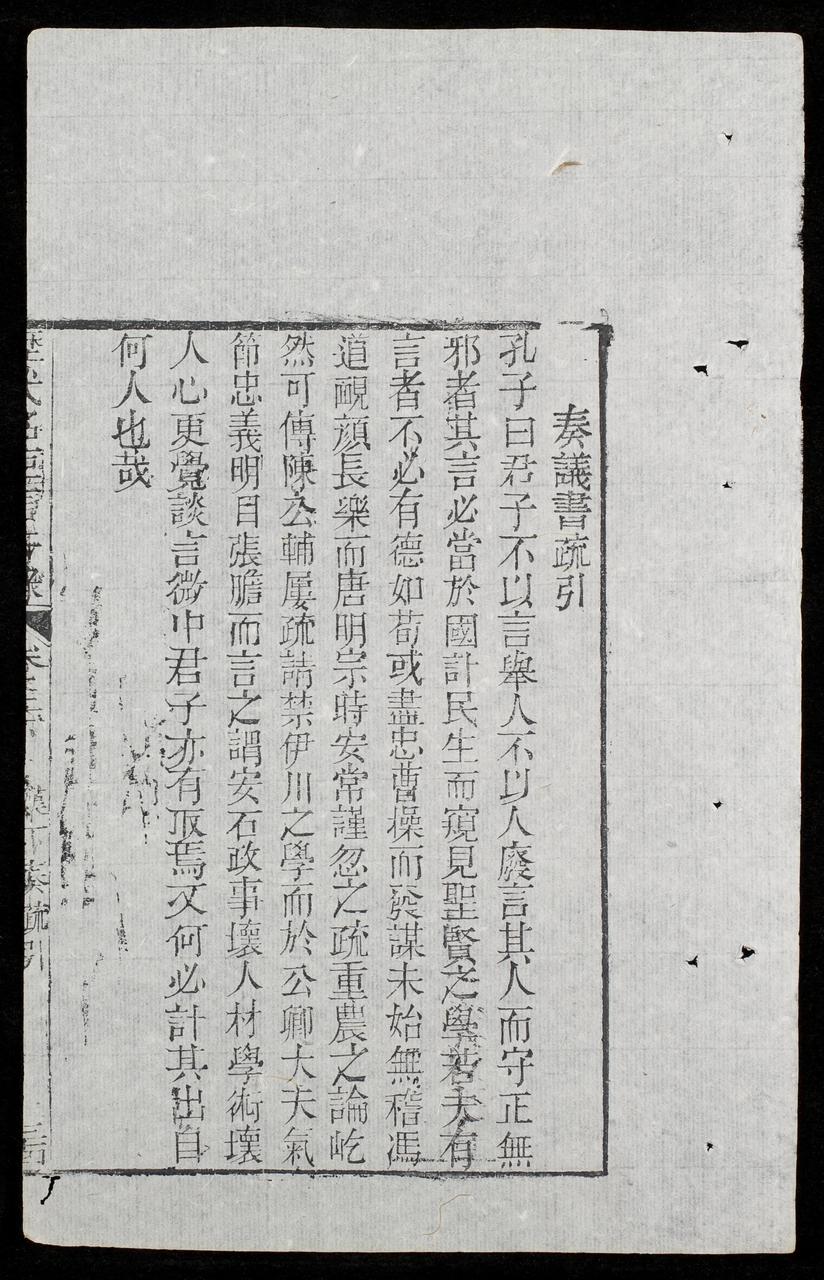 奏議書疏引
孔子曰君子不以言舉人不以人廢言其人而守正無
邪者其言必當於國計民生而窺見聖賢之學若夫有
言者不必有德如荀或盡忠曹操而發謀未始無稽馮
道靦顔長樂而唐明宗時安常謹忽之疏重農之論屹
然可傳陳公輔屢疏請禁伊川之學而於公卿大夫氣
節忠義明目張瞻而言之謂安石政事壞人材學術壞
人心更覺談言微中君子亦有取焉又何必計其出自
何人也哉
歷代名臣言行錄 奏疏引